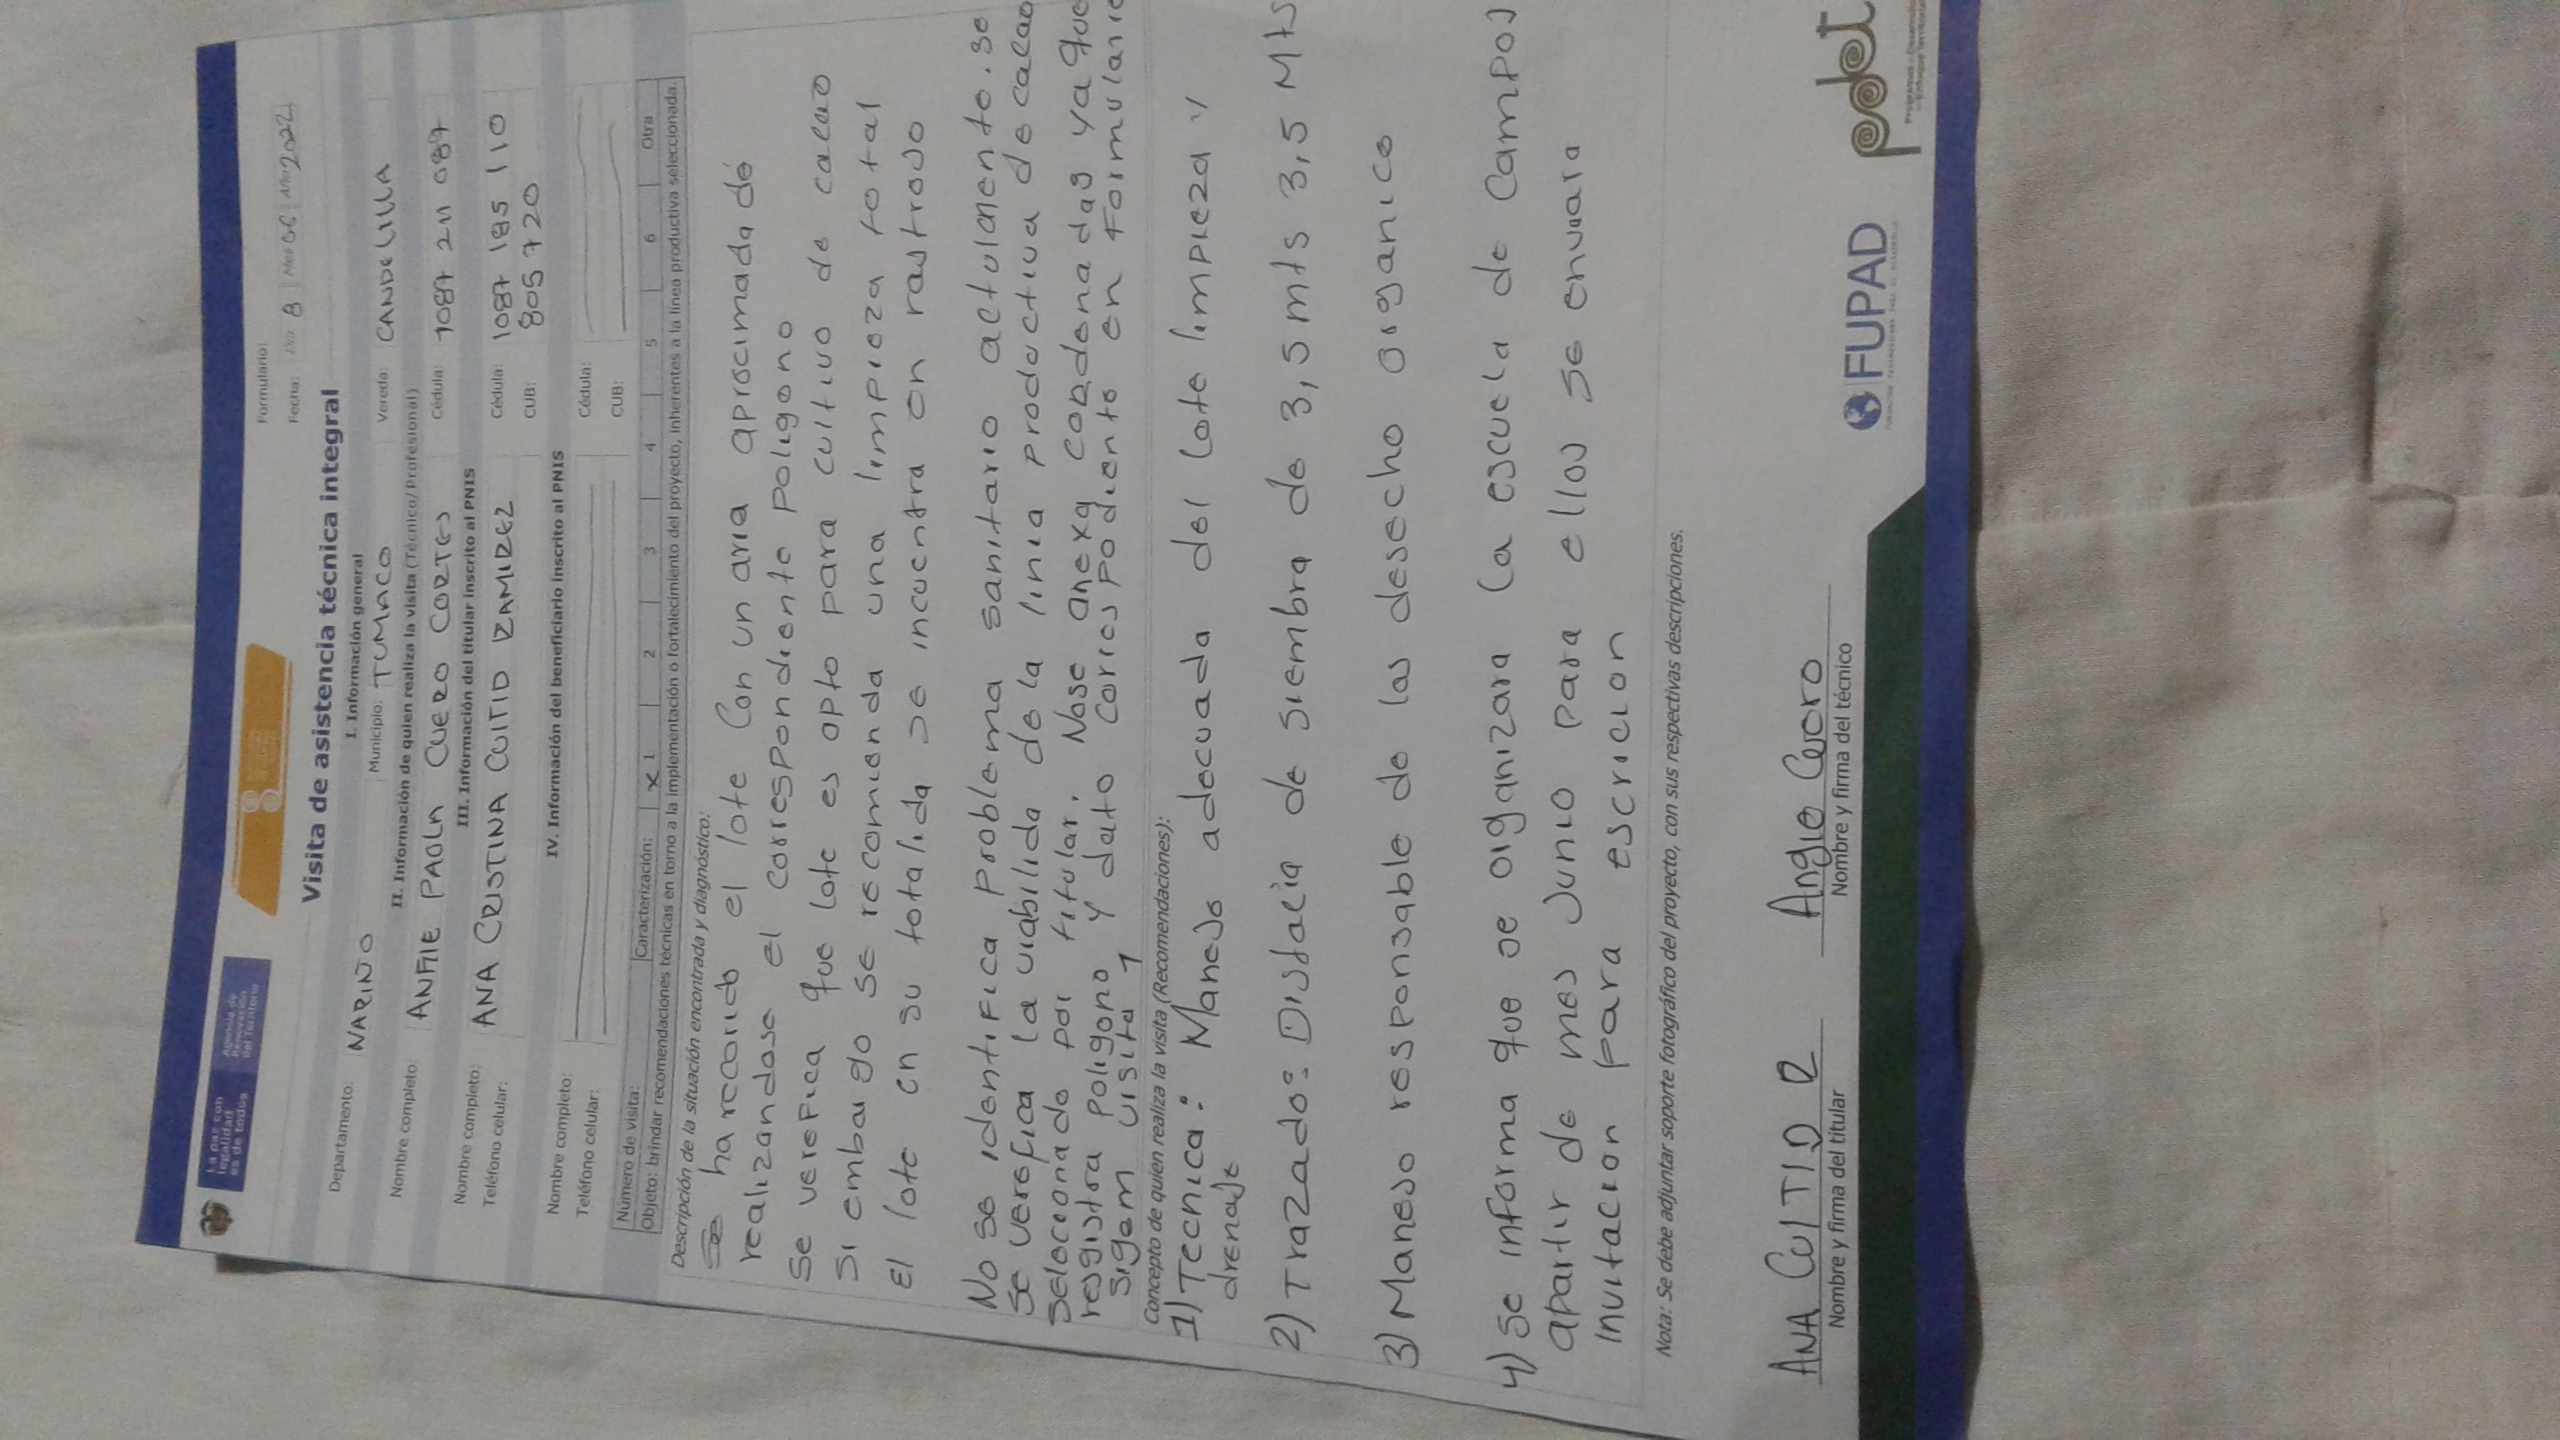 La paz con
legalidad
es de todos
Agencia de
Renovación
del Territorio
Formulario:
Fecha: Día 8 Mes 06 Año 2022
Visita de asistencia técnica integral
I. Información general
Departamento: NARIÑO Municipio: TUMACO Vereda: CANDELILLA
II. Información de quien realiza la visita (Técnico/Profesional)
Nombre completo: ANFIE PAOLA CUERO CORTES Cédula: 1087 211 087
III. Información del titular inscrito al PNIS
Nombre completo: ANA CRISTINA CUITID RAMIREZ Cédula: 1087 185 110
Teléfono celular: CUB: 805 720
IV. Información del beneficiario inscrito al PNIS
Nombre completo: Cédula:
Teléfono celular: CUB:
Número de visita: Caracterización: X 1 2 3 4 5 6 Otra
Objeto: brindar recomendaciones técnicas en torno a la implementación o fortalecimiento del proyecto, inherentes a la línea productiva seleccionada.
Descripción de la situación encontrada y diagnóstico:
Se ha recorido el lote Con un aria aprocimada dé
realizandose el correspondiente poligono
Se verefica que lote es apto para cultivo de cacao
Si embargo se recomienda una limpieza total
El lote en su totalida se incuentra en rastrojo
No se identifica problema sanitario actulamente. se
se verefica la viabilida de la linia productiva de cacao
selecionado por titular. Nose anexa condenadas ya que
resgistra poligono y dato correspodiente en formulario
sigem visita 1
Concepto de quien realiza la visita (Recomendaciones):
1) Tecnica: Manejo adecuada del lote limpieza y
drenaje
2) Trazados Distacia de siembra de 3,5 mts 3,5 Mts
3) Manejo responsable de las desecho organico
4) se informa que se organizara la escuela de campos
apartir de mes Junio para ellos se envuara
invitacion para escricion
Nota: Se debe adjuntar soporte fotográfico del proyecto, con sus respectivas descripciones.
ANA CUITID R Angie Cuero
Nombre y firma del titular Nombre y firma del técnico
FUPAD pdet